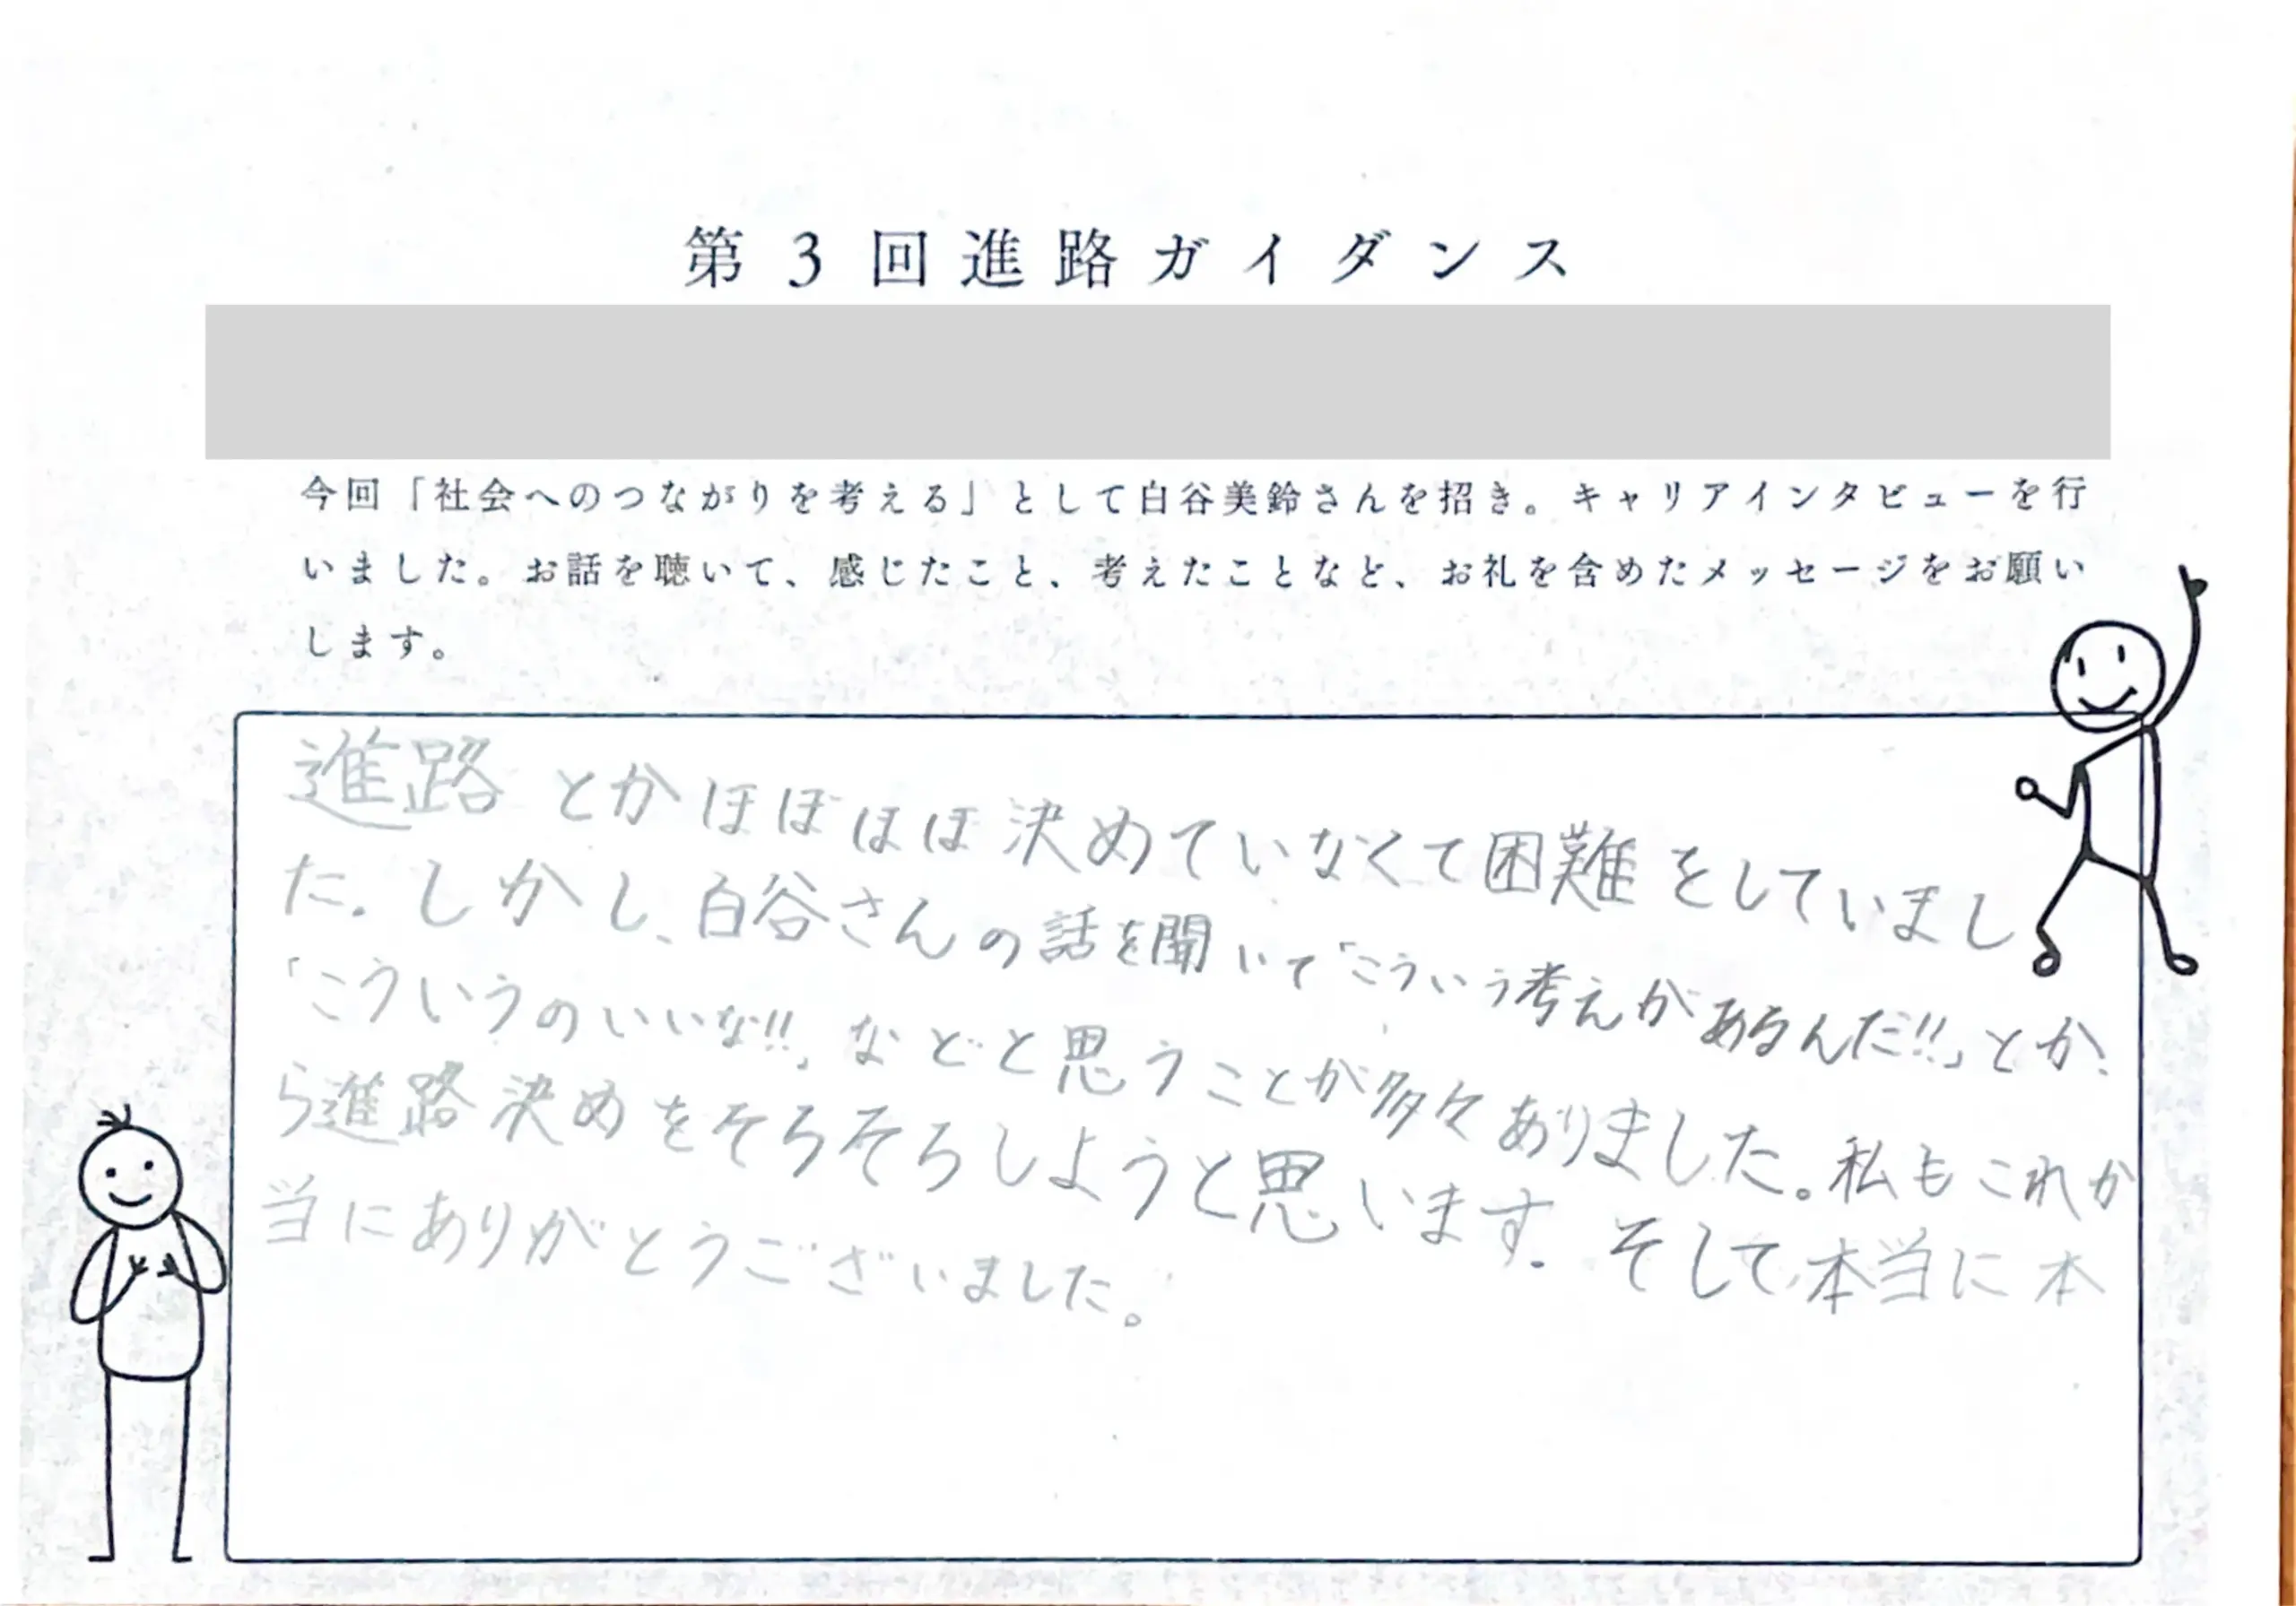 第3回進路ガイダンス
今回「社会へのつながりを考える」として白谷美鈴さんを招き。キャリアインタビューを行
いました。お話を聴いて、感じたこと、考えたことなど、お礼を含めたメッセージをお願い
します。
進路とかほぼほぼ決めていなくて困難をしていまし
た。しかし、白谷さんの話を聞いて「こういう考えがあるんだ!!」とか、
「こういうのいいな!!」などと思うことが多々ありました。私もこれか
ら進路決めをそろそろしようと思います。そして、本当に本
当にありがとうございました。